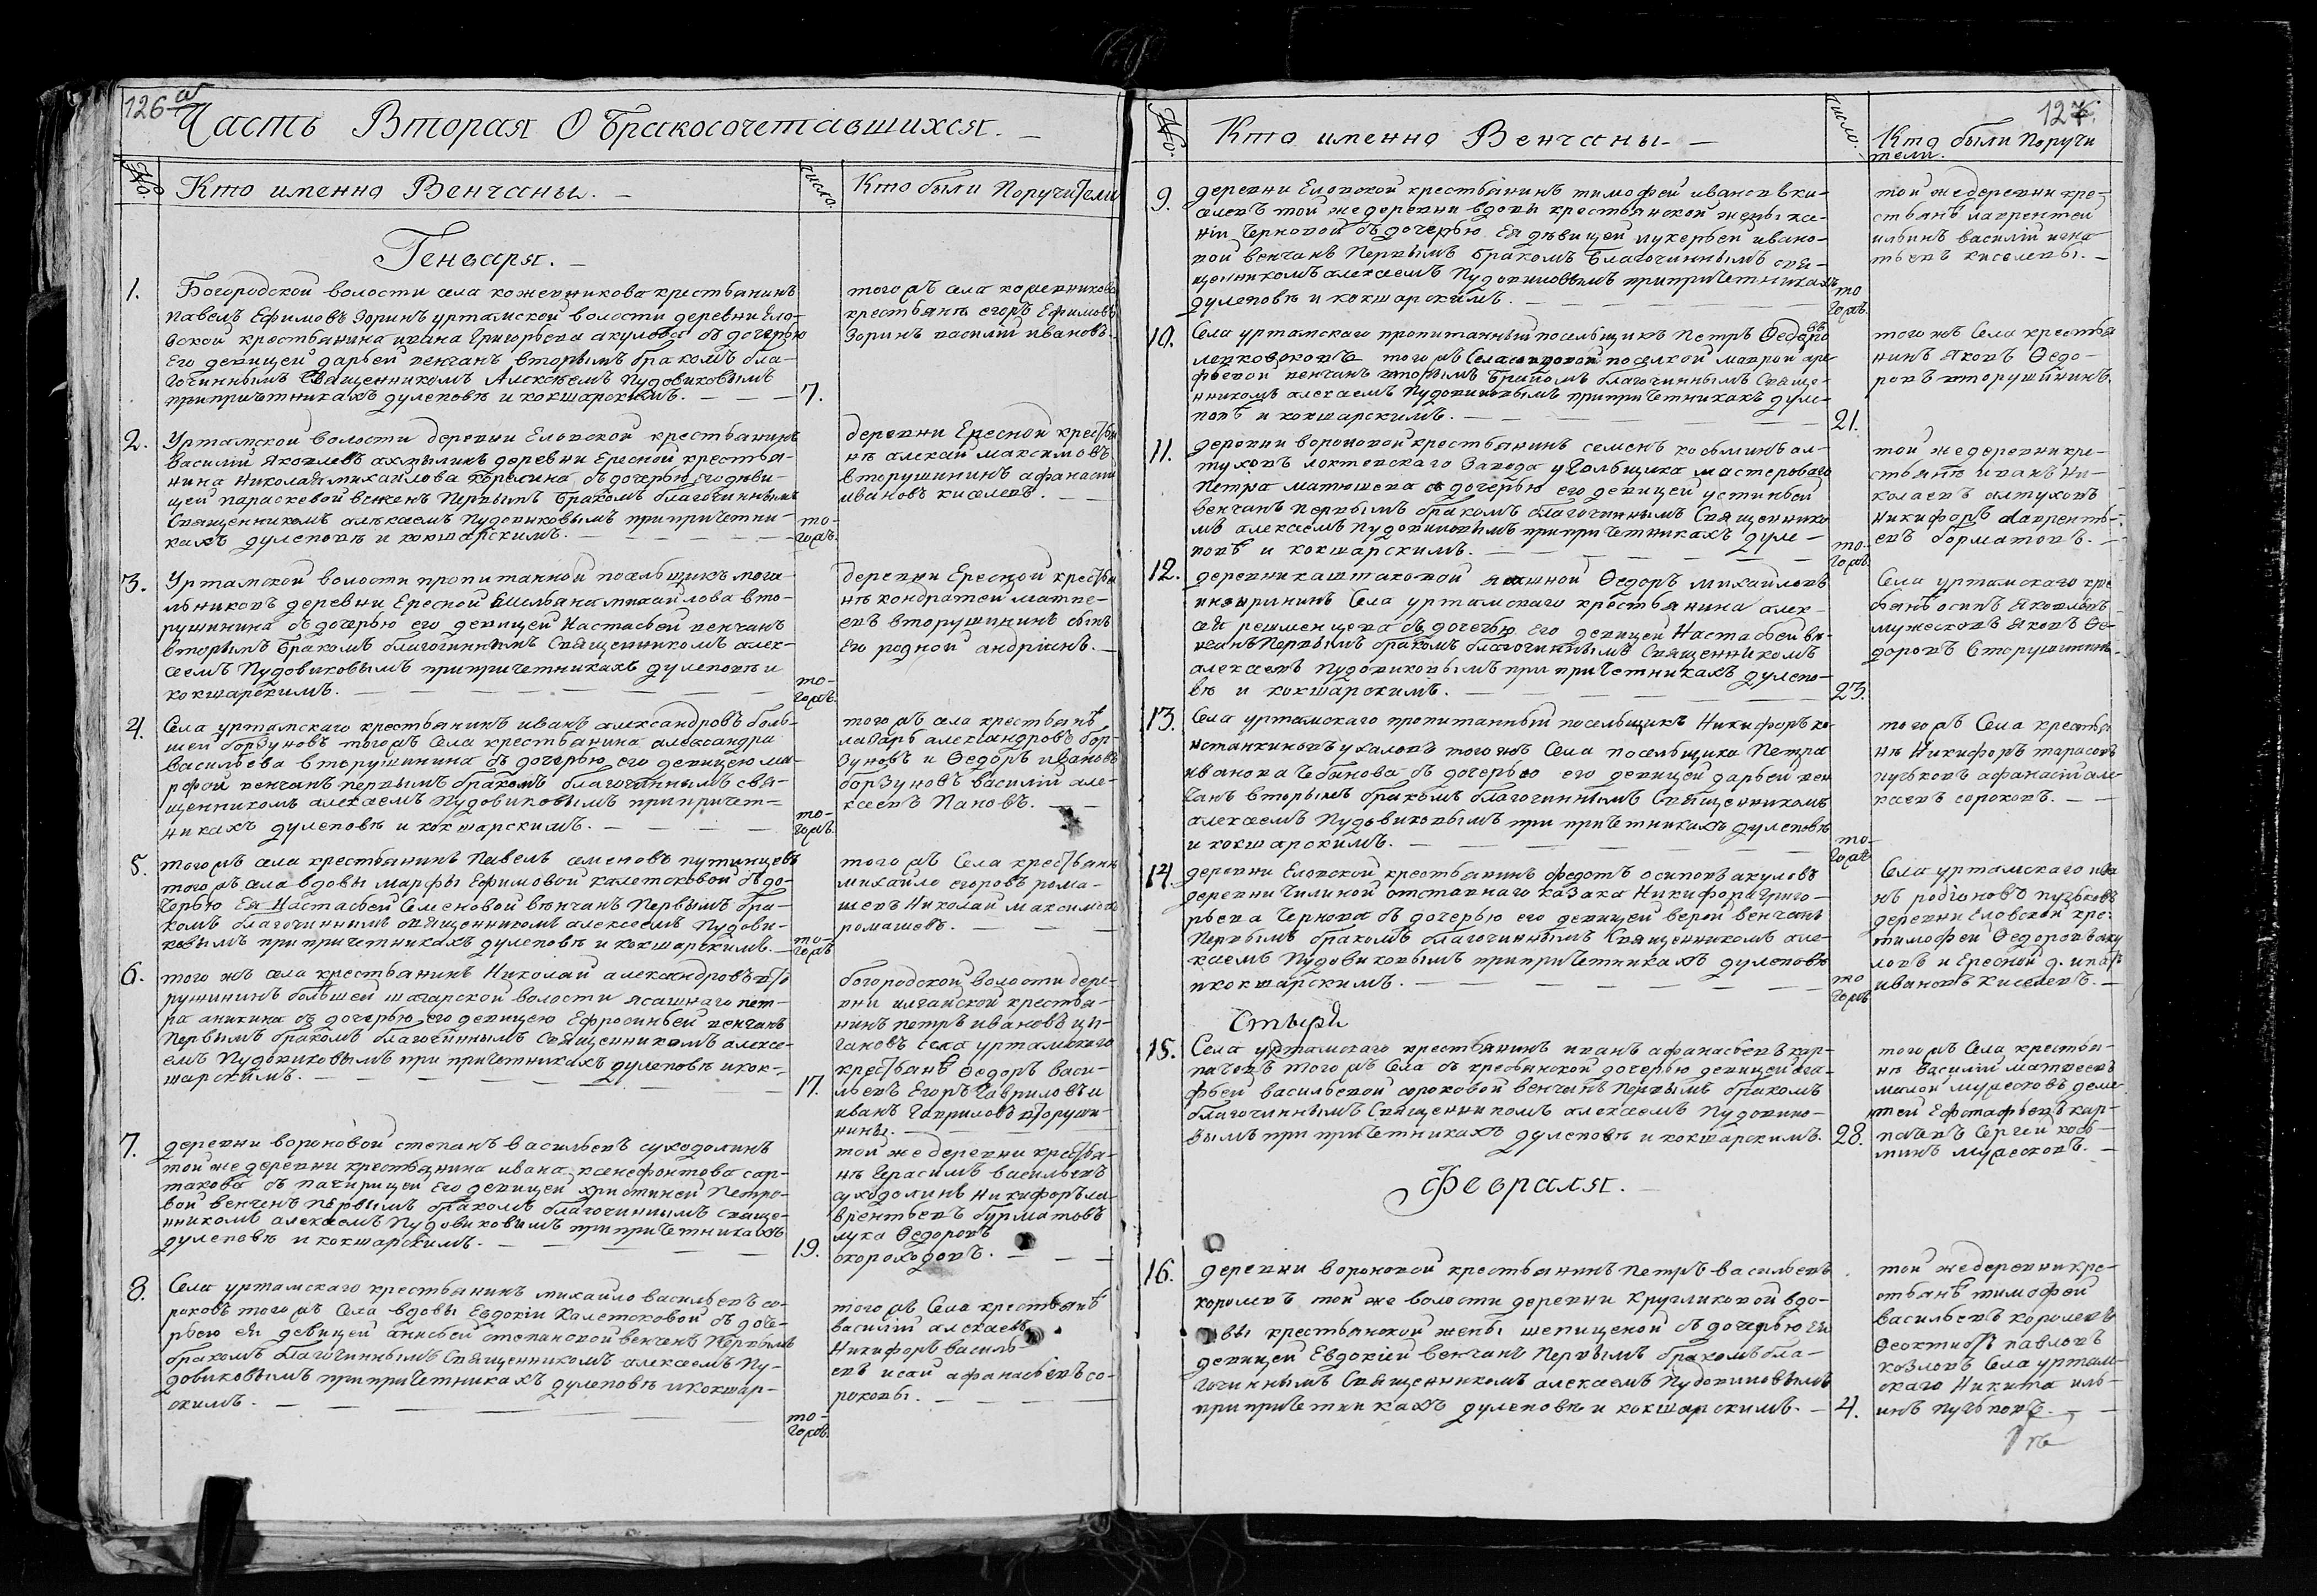 126
Часть Вторая О бракосочетавшихся.
№. Кто именно Венчаны. число. Кто были Поручители
Генваря.
1. Богородской волости села кожевникова крестьянинъ
павелъ Ефимовъ Зоринъ уртамской волости деревни Ело-
вской крестьянина ивана Григорьева акулова съ дочерью
Его девицей дарьей венчанъ вторымъ бракомъ бла-
гочиннымъ Священникомъ Алексѣемъ Пудовиковымъ
припричетникахъ дулеповѣ и кокшарскимъ. 7.
тогожъ села кожевникова
крестьянѣ егоръ Ефимовъ
Зоринъ василій ивановъ.
2. Уртамской волости деревни Еловской крестьянинъ
василій Яковлевъ деревни Ересной крестья-
нина николая михайлова Карелина съ дочерью его дѣви-
цей параскевой венчанъ Первымъ бракомъ благочиннымъ
Священникомъ алексаемъ пудовиковымъ припричетни-
кахъ дулеповѣ и кокшарскимъ. то-
гожъ.
деревни Ересной крестья
нѣ алексѣй максимовъ
вторушининъ афанасій
ивановъ киселевъ.
3. Уртамской волости пропитанной посельщикъ мога-
льниковъ деревни Ересной Емельяна михайлова вто-
рушинина съ дочерью его девицей Настасьей венчанъ
вторымъ бракомъ благочиннымъ Священникомъ алек-
саемъ Пудовиковымъ припричетникахъ дулеповѣ и
кокшарскимъ. то-
гожъ.
деревни Ересной крестья
нѣ кондратей матве-
евъ вторушининъ сынъ
Его родной андріянъ.
4. Села уртамскаго крестьянинъ иванъ александровъ боль-
шей борзуновъ тогожъ Села крестьянина александра
васильева вторушинина съ дочерью его девицею ма-
рфой венчанъ первымъ бракомъ благочиннымъ свя-
щенникомъ алексаемъ Пудовиковымъ припричет-
никахъ дулеповѣ и кокшарскимъ. то-
гожъ.
тогожъ села крестьянѣ
лазарь александровъ бор-
зуновъ и Ѳедоръ ивановъ
борзуновъ василій але-
ксаевъ Пановъ.
5. тогожъ села крестьянинъ Павелъ семеновъ путинцевъ
тогожъ села вдовы марфы Ефимовой калетоковой съ до-
черью Ея Настасьей Семеновой вѣнчанъ Первымъ бра-
комъ благочиннымъ священникомъ алексеемъ Пудови-
ковымъ припричетникахъ дулеповѣ и кокшарскимъ. то-
гожъ
тогожъ Села крестьянѣ
михайло егоровъ рома-
шевъ Николай максимовъ
ромашевъ.
6. тогожъ села крестьянинъ Николай александровъ вто
рушининъ большей шагарской волости ясашнаго пет-
ра аникина съ дочерью его девицею Ефросиньей венчанъ
Первымъ бракомъ благочиннымъ Священникомъ алексе-
емъ Пудовиковымъ при причетникахъ дулеповѣ икок-
шарскимъ. 17.
богородской волости дере-
вни илганской крестья-
нинъ петръ ивановъ цы-
гановъ села уртамскаго
крестьянѣ Ѳедоръ васи-
льевъ Егоръ Гавриловъ и
иванъ Гавриловъ вторуши-
нины.
7. деревни вороновой степанъ васильевъ суходолинъ
той же деревни крестьянина ивана ксенофонтова сар-
такова съ падчирицей Его девицей христиней Петро-
вой венчанъ первымъ бракомъ благочиннымъ Свяще-
нникомъ алексаемъ Пудовиковымъ припричетникахъ
дулеповѣ и кокшарскимъ. 19.
той же деревни крестья-
нѣ Герасимъ васильевъ
суходолинъ никифоръ ла-
врентьевъ бурматовъ
лука Ѳедоровъ
скороходовъ.
8. Села уртамскаго крестьянинъ михайло васильевъ со-
роковъ тогожъ Села вдовы Евдокіи Калетоковой съ доче-
рью ея девицей анисьей степановой венчанъ Первымъ
бракомъ благочиннымъ Священникомъ алексаемъ Пу-
довиковымъ припричетникахъ дулеповѣ икокшар-
скимъ. то-
гожъ.
тогожъ Села крестьянѣ
василій алексаевъ
Никифоръ василь-
евъ исай афанасьевъ со-
роковы.
127.
№. Кто именно Венчаны число. Кто были Поручи
тели.
9. деревни Еловской крестьянинъ тимофей ивановъ ки-
селевъ той же деревни вдовы крестьянской жены ксе-
ніи Черновой съ дочерью Ея дѣвицей лукерьей ивано-
вой венчанъ Первымъ бракомъ благочиннымъ свя-
щенникомъ алексаемъ Пудовиковымъ припричетникахъ
дулеповѣ и кокшарскимъ. то
гожъ.
той же деревни кре-
стьянѣ лаврентей
ильинъ василій игна
тьевъ киселевы.
10. Села уртамскаго пропитанный посельщикъ Петръ Ѳедоро
въ
тогожъ Села поселкой маврой аре-
фьевой венчанъ вторымъ бракомъ благочиннымъ Свяще-
нникомъ алексаемъ Пудовиковымъ припричетникахъ дуле-
повѣ и кокшарскимъ. 21.
того жъ Села крестья
нинъ Яковъ Ѳедо-
ровъ вторушининъ.
11. деревни вороновой крестьянинъ семенъ козьминъ ал-
туховъ локтевскаго Завода мастероваго
Петра матюшева съ дочерью его девицей устиньей
венчанъ первымъ бракомъ благочиннымъ Священнико
мъ алексаемъ пудовиковымъ припричетникахъ дуле-
повѣ и кокшарскимъ. то-
гожъ.
той же деревни кре-
стьянѣ иванъ ни-
колаевъ алтуховъ
никифоръ лавренть-
евъ бормотовъ.
12. деревни каштаковой ясашной Ѳедоръ михайловъ
Села уртамскаго крестьянина алек-
сея решменцева съ дочерью Его девицей Настасьей вен
чанъ Первымъ бракомъ благочиннымъ Священникомъ
алексаемъ пудовиковымъ при причетникахъ дулепо-
вѣ и кокшарскимъ. 23.
Села уртамскаго кре
стьянѣ осипъ Яковлевъ
мужесковъ Яковъ Ѳе-
доровъ вторушининъ.
13. Села уртамскаго пропитанный посельщикъ Никифоръ ко-
нстантиновъ ухаловъ тогожъ Села посельщика Петра
иванова Чебанова съ дочерью его девицей дарьей вен
чанъ вторымъ бракомъ благочиннымъ Священникомъ
алексаемъ Пудовиковымъ при причетникахъ дулеповѣ
и кокшарскимъ. то-
гожъ
тогожъ Села крестья
нѣ Никифоръ тарасовъ
пучковъ афанасій але
ксаевъ сороковъ.
14. деревни Еловской крестьянинъ федотъ осиповъ акуловъ
деревни Чилиной отставнаго казака Никифора Григо-
рьева Чернова съ дочерью его девицей верой венчанъ
Первымъ бракомъ благочиннымъ Священникомъ але-
ксаемъ Пудовиковымъ припричетникахъ дулеповѣ
и кокшарскимъ. то
гожъ
Села уртамскаго ива
нъ родіоновъ пучковъ
деревни Еловской кре.
тимофей Ѳедоровъ аку
ловъ и Ересной д.
ивановъ Киселевъ.
15. Села уртамскаго крестьянинъ иванъ афанасьевъ кар-
пачевъ тогожъ Села съ кресьянской дочерью девицей ага-
фьей васильевой сороковой венчанъ первымъ бракомъ
благочиннымъ Священникомъ алексаемъ Пудовико-
вымъ при причетникахъ дулеповѣ и кокшарскимъ. 28.
тогожъ Села крестья-
нѣ василій матвеевъ
малой мужесковъ деме
нтей Ефстафьевъ кар-
пачевъ Сергей козь-
минъ мужесковъ.
Февраля.
16. деревни вороновой крестьянинъ Петръ васильевъ
королевъ той же волости деревни Кругликовой вдо-
вы крестьянской жены шепициной съ дочерью Ея
девицей Евдокіей венчанъ Первымъ бракомъ бла-
гочиннымъ Священникомъ алексаемъ Пудовиковымъ
припричетникахъ дулеповѣ и кокшарскимъ. 4.
той же деревни кре-
стьянѣ тимофей
васильевъ королевъ
Ѳеоктистъ павловъ
козловъ Села уртам-
скаго Никита иль-
инъ пучковъ.